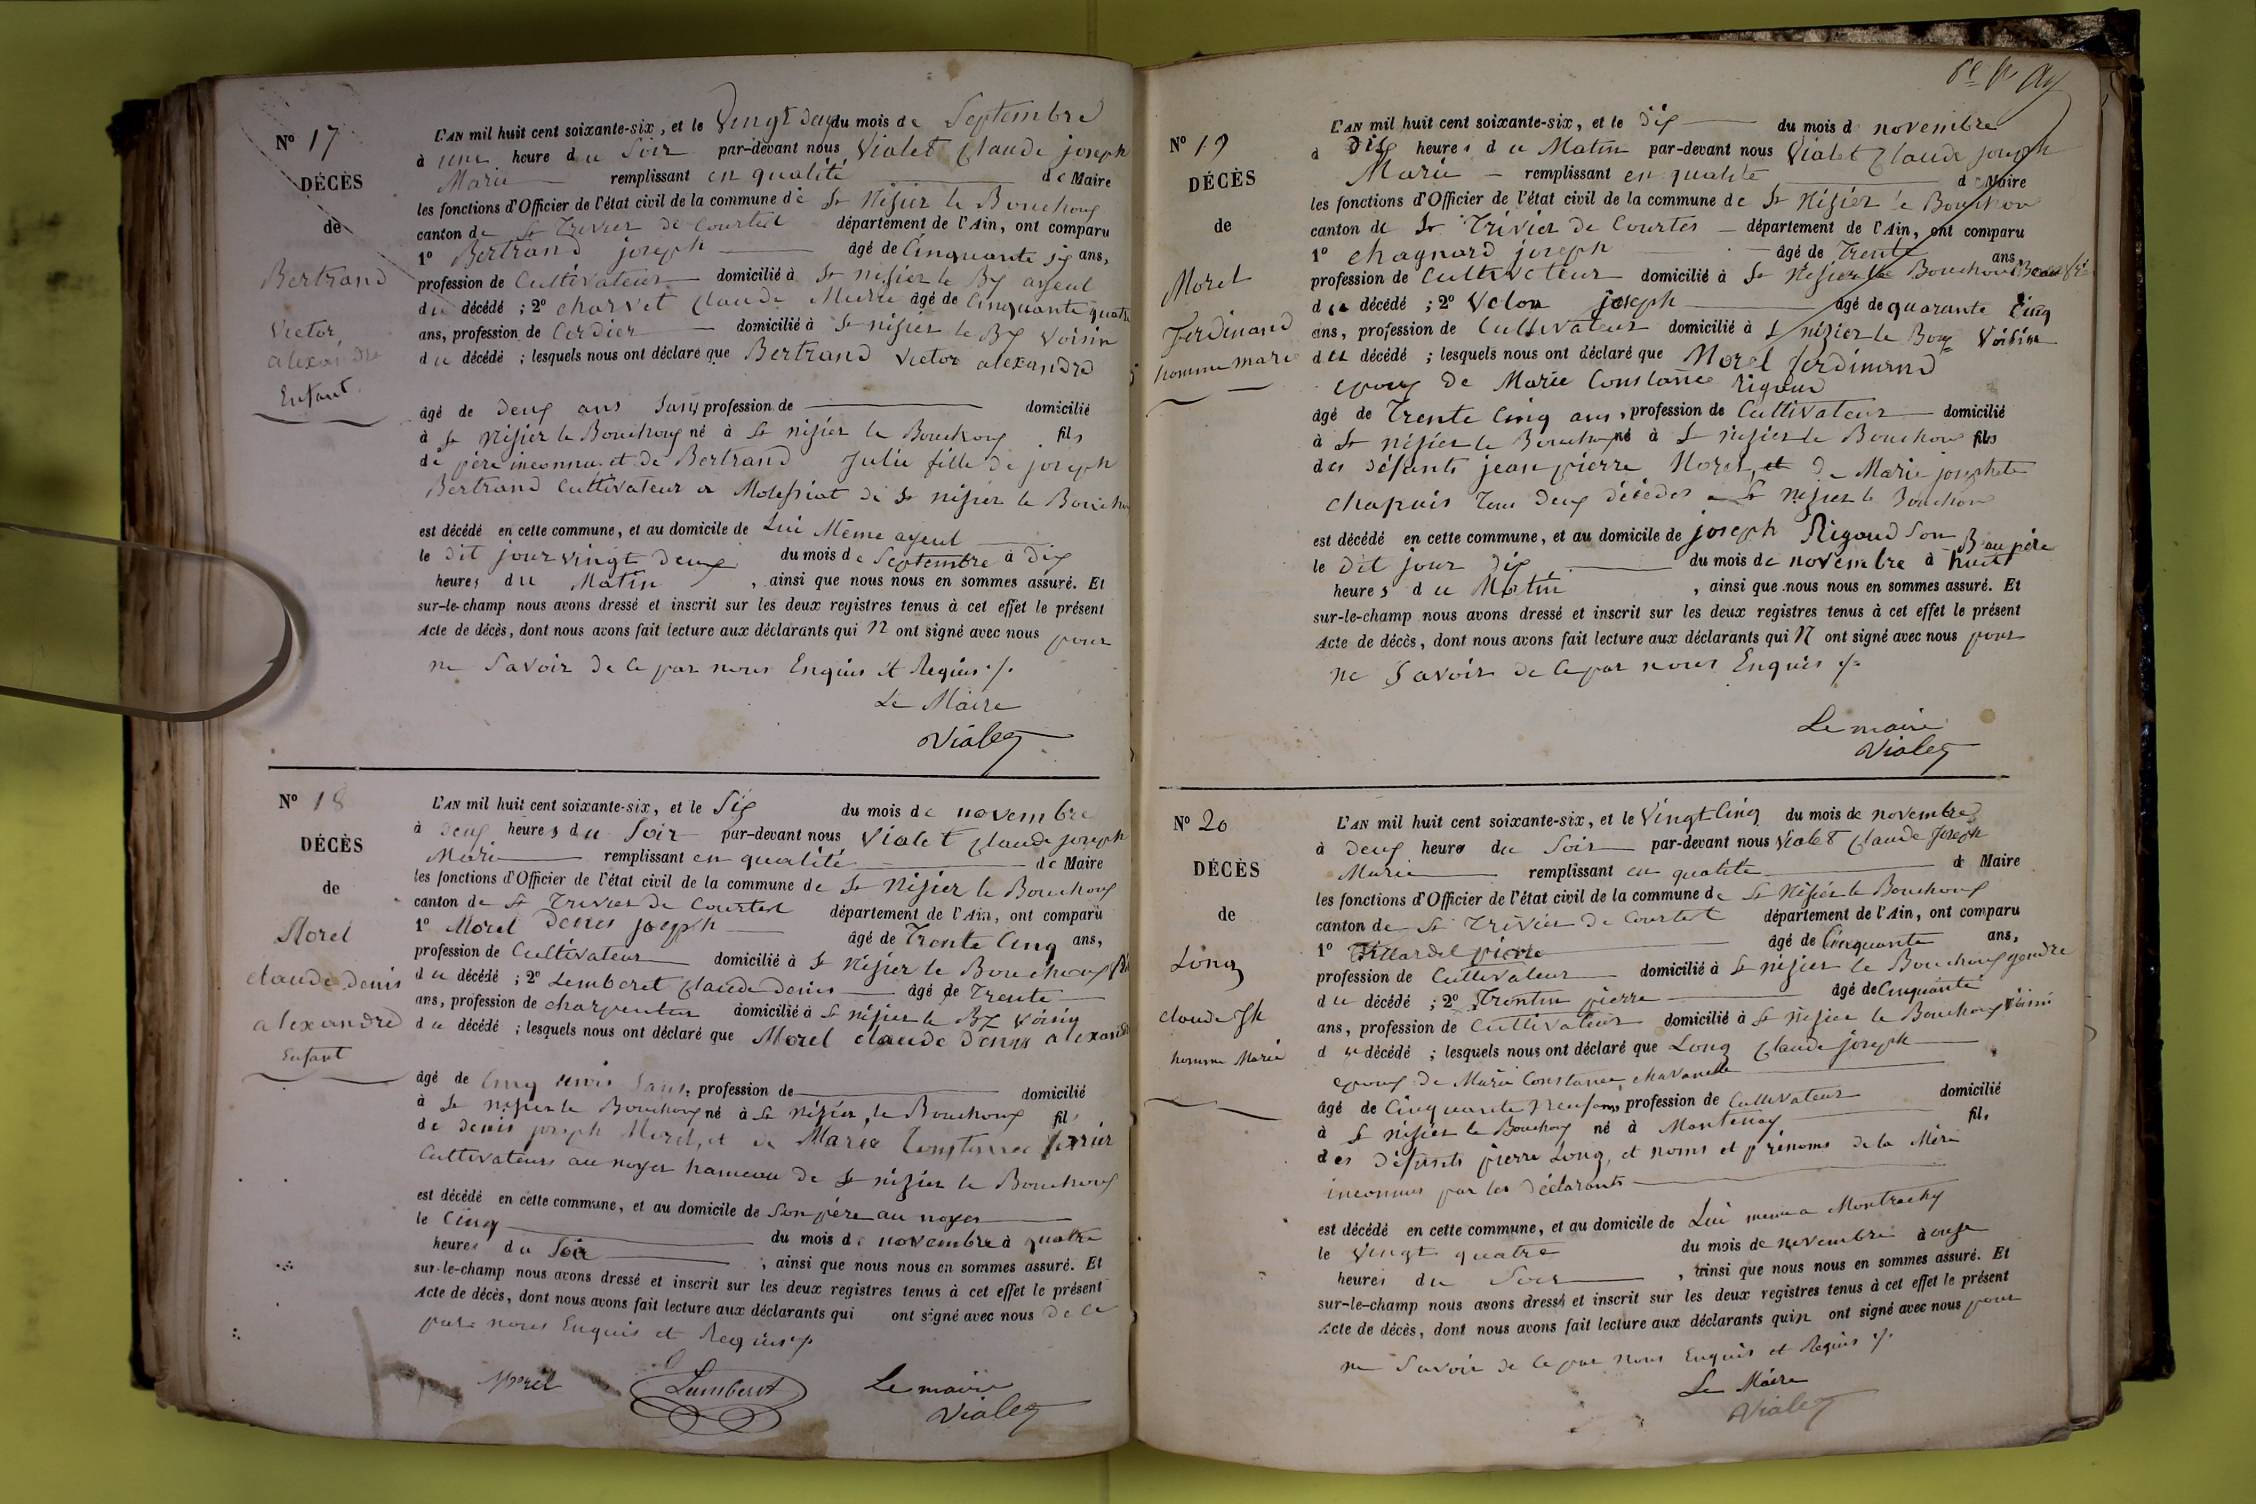 Nº 17
DÉCÈS
de
Bertrand
Victor
alexandre
Enfant
L'AN mil huit cent soixante-six, et le Vingt deux du mois de Septembre
à une heure du Soir par-devant nous Vialet Claude joseph
Marie remplissant en qualité de Maire
les fonctions d'Officier de l'état civil de la commune de St Nizier le Bouchoux
canton de St Trivier de Courtes département de l'Ain, ont comparu
1º Bertrand joseph âgé de Cinquante six ans,
profession de Cultivateur domicilié à St nizier le Bx ayeul
du décédé ; 2º charvet Claude Marie âgé de Cinquante quatre
ans, profession de Cordier domicilié à St nizier le Bx Voisin
du décédé ; lesquels nous ont déclaré que Bertrand Victor alexandre
âgé de deux ans Sans profession de domicilié
à St Nizier le Bouchoux né à St nizier le Bouchoux fils
de père inconnu et de Bertrand Julie fille de joseph
Bertrand Cultivateur a Molessiat de St nizier le Bouchoux
est décédé en cette commune, et au domicile de Lui Même ayeul
le dit jour vingt deux du mois de Septembre à Dix
heures du Matin , ainsi que nous nous en sommes assuré. Et
sur-le-champ nous avons dressé et inscrit sur les deux registres tenus à cet effet le présent
Acte de décès, dont nous avons fait lecture aux déclarants qui n ont signé avec nous pour
ne Savoir de Ce par nous Enquis et Requis ./.
Le Maire
Vialet
Nº 18
DÉCÈS
de
Morel
claude denis
alexandre
Enfant
L'AN mil huit cent soixante-six, et le Six du mois de novembre
à deux heures du Soir par-devant nous Vialet Claude joseph
Marie remplissant en qualité de Maire
les fonctions d'Officier de l'état civil de la commune de St Nizier le Bouchoux
canton de St Trivier de Courtes département de l'Ain, ont comparu
1º Morel Denis joseph âgé de Trente Cinq ans,
profession de Cultivateur domicilié à St Nizier le Bouchoux
du décédé ; 2º Lemberet Claude Denis âgé de Trente
ans, profession de charpentier domicilié à St nizier le Bx Voisin
du décédé ; lesquels nous ont déclaré que Morel claude Denis alexandre
âgé de Cinq mois Sans, profession de domicilié
à St nizier le Bouchoux né à St Nizier le Bouchoux fils
de denis joseph Morel, et de Marie Constance
Cultivateurs au noyer hameau de St nizier le Bouchoux
est décédé en cette commune, et au domicile de Son père au noyer
le Cinq du mois de novembre à quatre
heures du Soir , ainsi que nous nous en sommes assuré. Et
sur-le-champ nous avons dressé et inscrit sur les deux registres tenus à cet effet le présent
Acte de décès, dont nous avons fait lecture aux déclarants qui ont signé avec nous de Ce
par nous Enquis et Requis ./.
Morel Lamberet Le maire
Vialet
Nº 19
DÉCÈS
de
Morel
Ferdinand
homme marié
L'AN mil huit cent soixante-six, et le dix du mois d novembre
à Dix heures du Matin par-devant nous Vialet Claude joseph
Marie remplissant en qualité de Maire
les fonctions d'Officier de l'état civil de la commune de St Nizier le Bouchoux
canton de St Trivier de Courtes département de l'Ain, ont comparu
1º chagnard joseph âgé de Trente ans,
profession de Cultivateur domicilié à St Nizier le Bouchoux Beau frère
du décédé ; 2º Velon joseph âgé de quarante Cinq
ans, profession de Cultivateur domicilié à St nizier le Boux Voisin
du décédé ; lesquels nous ont déclaré que Morel Ferdinand
époux de Marie Constance Rigoud
âgé de Trente Cinq ans, profession de Cultivateur domicilié
à St Nizier le Bouchoux né à St nizier le Bouchoux fils
des défunts jean pierre Morel, et de Marie josephete
chapuis Tous deux décédés a St Nizier le Bouchoux
est décédé en cette commune, et au domicile de joseph Rigoud Son Beau père
le dit jour dix du mois de novembre à huit
heures du Matin , ainsi que nous nous en sommes assuré. Et
sur-le-champ nous avons dressé et inscrit sur les deux registres tenus à cet effet le présent
Acte de décès, dont nous avons fait lecture aux déclarants qui N ont signé avec nous pour
ne Savoir de Ce par nous Enquis ./.
Le maire
Vialet
Nº 20
DÉCÈS
de
Long
claude Jph
homme Marié
L'AN mil huit cent soixante-six, et le Vingt Cinq du mois de novembre
à deux heures du Soir par-devant nous Vialet Claude Joseph
Marie remplissant en qualité de Maire
les fonctions d'Officier de l'état civil de la commune de St Nizier le Bouchoux
canton de St Trivier de Courtes département de l'Ain, ont comparu
1º Tillardel pierre âgé de Cinquante ans,
profession de Cultivateur domicilié à St nizier le Bouchoux gendre
du décédé ; 2º Trontin pierre âgé de Cinquante
ans, profession de Cultivateur domicilié à St Nizier le Bouchoux Voisin
du décédé ; lesquels nous ont déclaré que Long Claude joseph
époux de Marie Constance chavanelle
âgé de Cinquante Neuf ans, profession de Cultivateur domicilié
à St nizier le Bouchoux né à Mantenay fils
des défunts pierre Long, et noms et prénoms de la Mère
inconnus par les déclarants
est décédé en cette commune, et au domicile de Lui meme a Montrachy
le Vingt quatre du mois de novembre à onze
heures du Soir , ainsi que nous nous en sommes assuré. Et
sur-le-champ nous avons dressé et inscrit sur les deux registres tenus à cet effet le présent
Acte de décès, dont nous avons fait lecture aux déclarants qui n ont signé avec nous pour
ne Savoir de Ce par nous Enquis et Requis ./.
Le Maire
Vialet